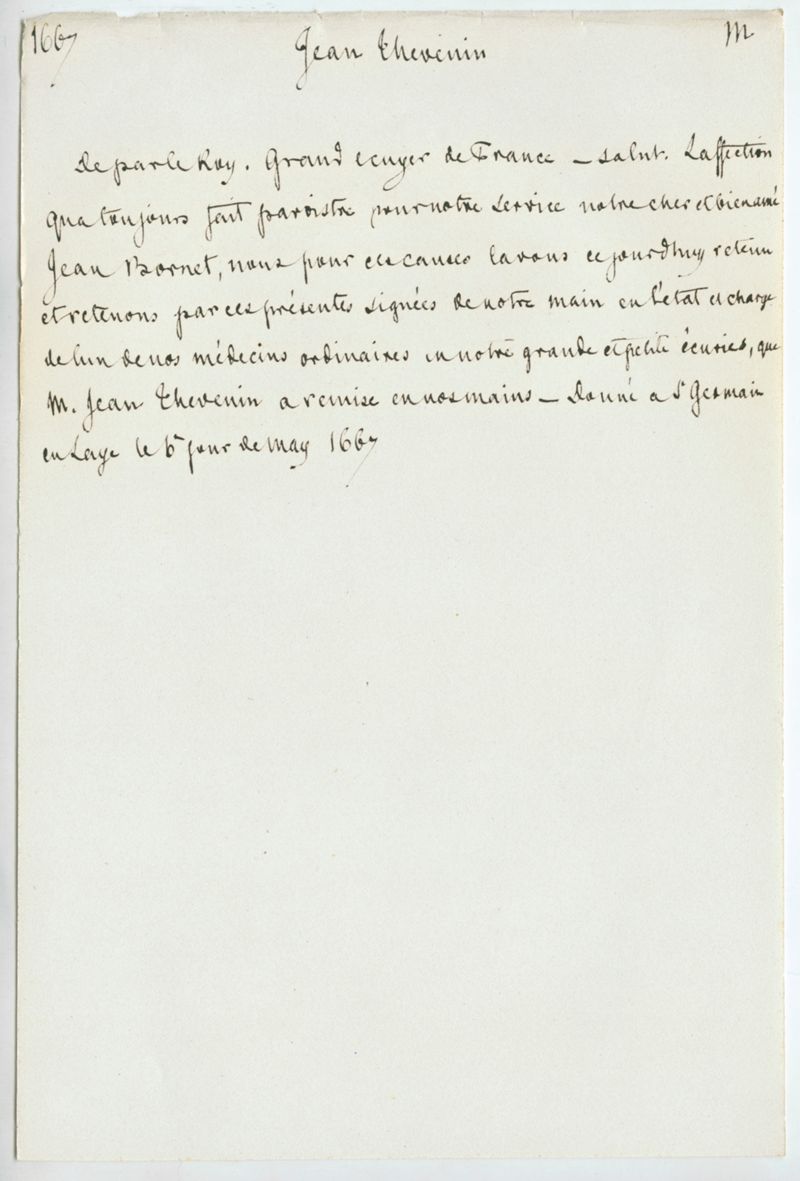 1667 Jean Thevenin M
De par le Roy. Grand ecuyer de France – salut. Laffection
qua toujours fait paroistre pour notre service notre cher et bien amé
Jean Bornet, nous pour ces causes lavons ce jourdhuy retenu
et retenons par ces présentes signées de notre main en l'état et charge
de lun de nos médecins ordinaires en notre grande et petite écuries, que
M. Jean Thevenin a remise en nos mains – Donné a St Germain
en Laye le jour de may 1667